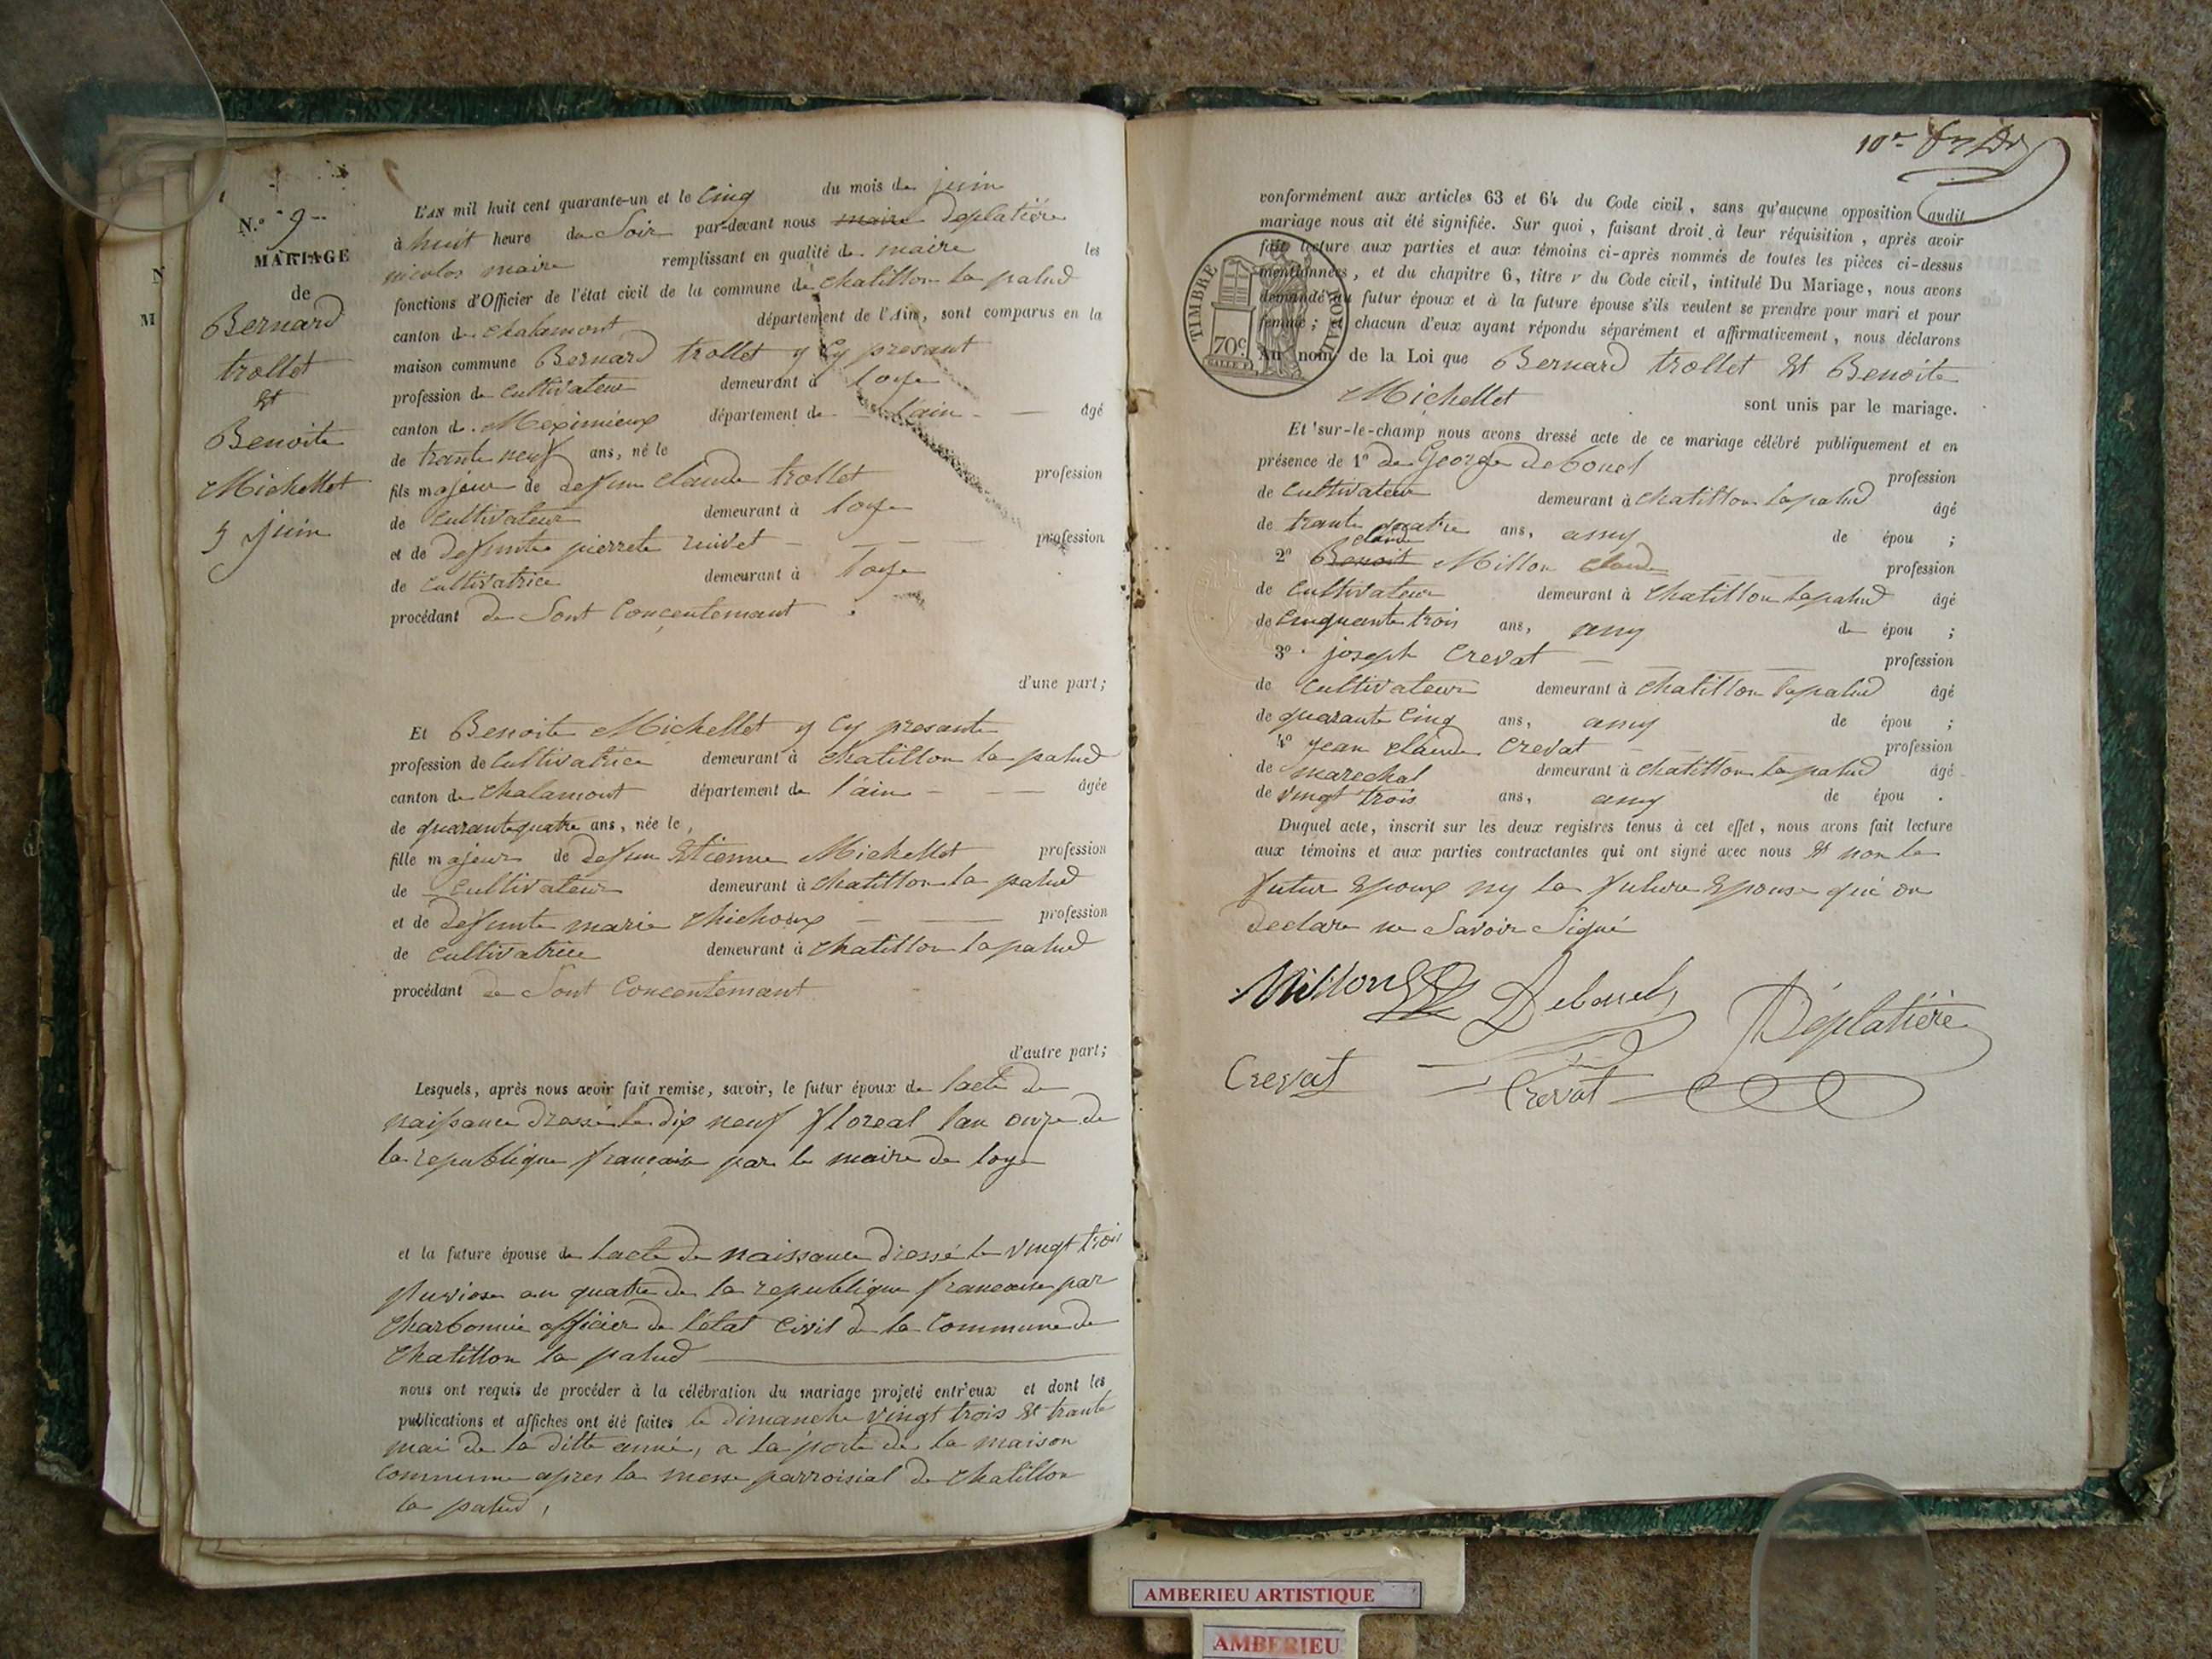 N.º 9
MARIAGE
de
Bernard
trollet
Et
Benoite
Michellet
5 juin
N
M
L'AN mil huit cent quarante-un et le Cinq du mois de juin
à huit heure du Soir par-devant nous maire Deplatière
nicolas maire remplissant en qualité de maire les
fonctions d'Officier de l'état civil de la commune de chatillon la palud
canton de chalamont département de l'Ain, sont comparus en la
maison commune Bernard trollet y Cy presant
profession de Cultivateur demeurant à loye
canton de Meximieux département de l'ain âgé
de trante neuf ans, né le
fils majeur de defun claude trollet profession
de Cultivateur demeurant à loye
et de defunte pierrete profession
de Cultivatrice demeurant à loye
procédant de Sont Concentemant
d'une part;
Et Benoite Michellet y Cy presante
profession de Cultivatrice demeurant à chatillon la palud
canton de Chalamont département de l'ain âgée
de quarante quatre ans, née le
fille majeur de defun Etienne Michellet profession
de Cultivateur demeurant à chatillon la palud
et de defunte marie chichoux profession
de Cultivatrice demeurant à chatillon la palud
procédant de Sont Concentemant
d'autre part;
Lesquels, après nous avoir fait remise, savoir, le futur époux de lacte de
naissance dressé le dix neuf floreal lan onze de
la republique française par le maire de loye
et la future épouse de lacte de naissance dressé le vingt trois
pluviose an quatre de la republique francaise par
Charbonnie officier de l'état Civil de la Commune de
Chatillon la palud
nous ont requis de procéder à la célébration du mariage projeté entr'eux et dont les
publications et affiches ont été faites le dimanche vingt trois Et trante
mai de la ditte année, a la porte de la maison
Commune apres la messe parroisial de chatillon
la palud,
10e
conformément aux articles 63 et 64 du Code civil, sans qu'aucune opposition audit
mariage nous ait été signifiée. Sur quoi, faisant droit à leur réquisition, après avoir
fait lecture aux parties et aux témoins ci-après nommés de toutes les pièces ci-dessus
mentionnées, et du chapitre 6, titre v du Code civil, intitulé Du Mariage, nous avons
demandé au futur époux et à la future épouse s'ils veulent se prendre pour mari et pour
femme; et chacun d'eux ayant répondu séparément et affirmativement, nous déclarons
Au nom de la Loi que Bernard trollet Et Benoite
Michellet sont unis par le mariage.
TIMBRE ROYAL
70c
Et sur-le-champ nous avons dressé acte de ce mariage célébré publiquement et en
présence de 1º de George debouel profession
de Cultivateur demeurant à chatillon lapalud âgé
de trante quatre ans, amy de épou ;
claude
2º Benoit Millon claude profession
de Cultivateur demeurant à Chatillon lapalud âgé
de Cinquante trois ans, amy de épou ;
3º joseph Crevat profession
de Cultivateur demeurant à chatillon lapalud âgé
de quarante Cinq ans, amy de épou ;
4º jean claude Crevat profession
de marechal demeurant à chatillon la palud âgé
de vingt trois ans, amy de épou .
Duquel acte, inscrit sur les deux registres tenus à cet effet, nous avons fait lecture
aux témoins et aux parties contractantes qui ont signé avec nous Et non le
futur Epoux ny la future Epouse qui on
declare ne Savoir Signé
Millon Debouel Déplatière
Crevat Crevat
AMBERIEU ARTISTIQUE
AMBERIEU